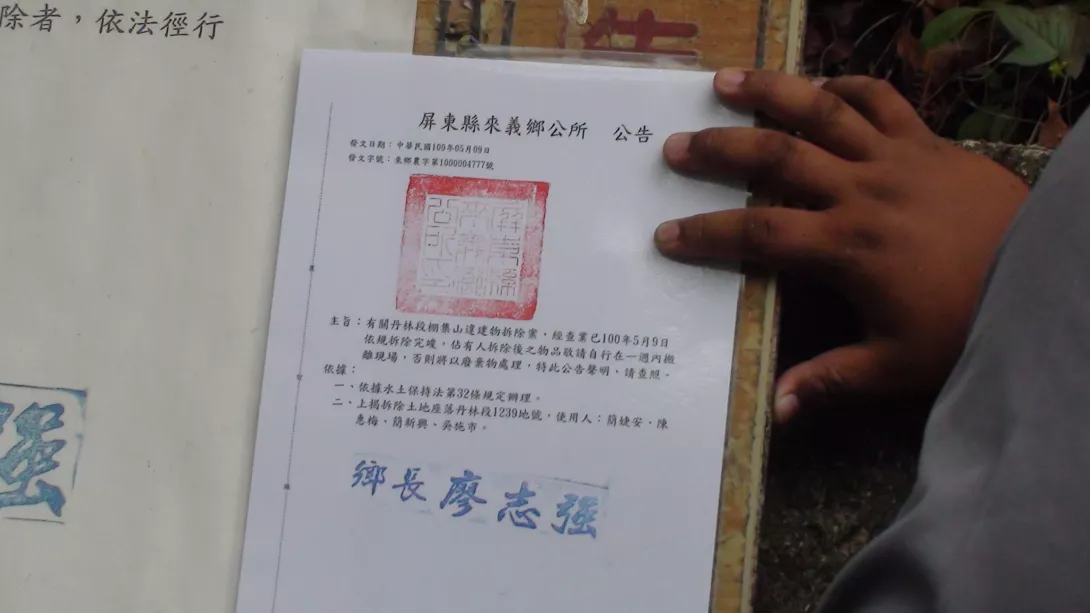 除者，依法徑行
屏東縣來義鄉公所 公告
發文日期：中華民國100年05月09日
發文字號：來鄉農字第1000004777號
主旨：有關丹林段棚集山違建物拆除案，經查業已100年5月9日
依規拆除完竣，佔有人拆除後之物品敬請自行在一週內搬
離現場，否則將以廢棄物處理，特此公告聲明、請查照。
依據：
一、依據水土保持法第32條規定辦理。
二、上揭拆除土地座落丹林段1239地號，使用人：簡婕安、陳
惠梅、簡新興、吳施市。
鄉長廖志强
强